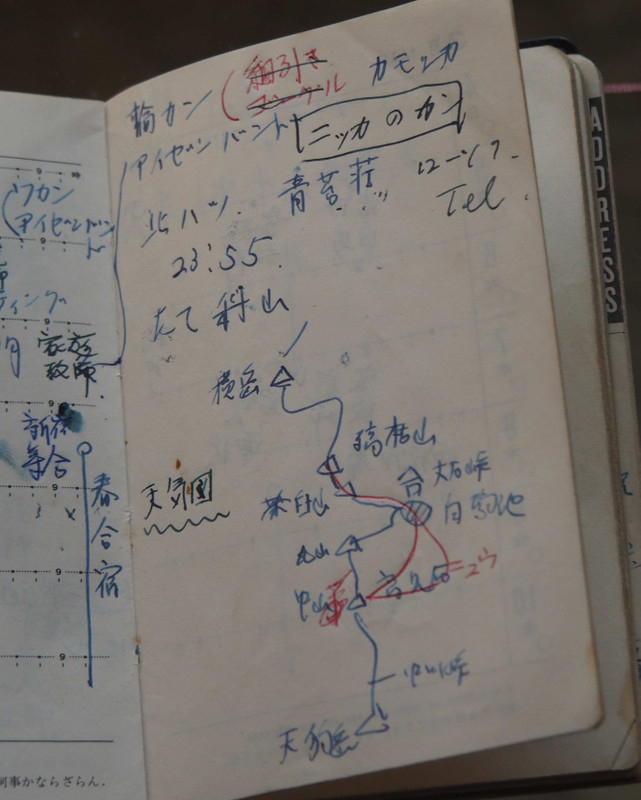 輪カン
細引き
カモシカ
アイゼンバンド
ニッカのカン
北ハツ.
青苔荘
ローソク.
Tel.
23:55.
たて科山
横岳
縞枯山
茶臼山
麦草峠
白駒池
丸山
中山
高見石
中山峠
天狗岳
天気図
ワカン
アイゼンバンド
家庭
教師
新宿
集合
春合宿
9
9
9
9
9
9
何事かならざらん.
ADDRESS